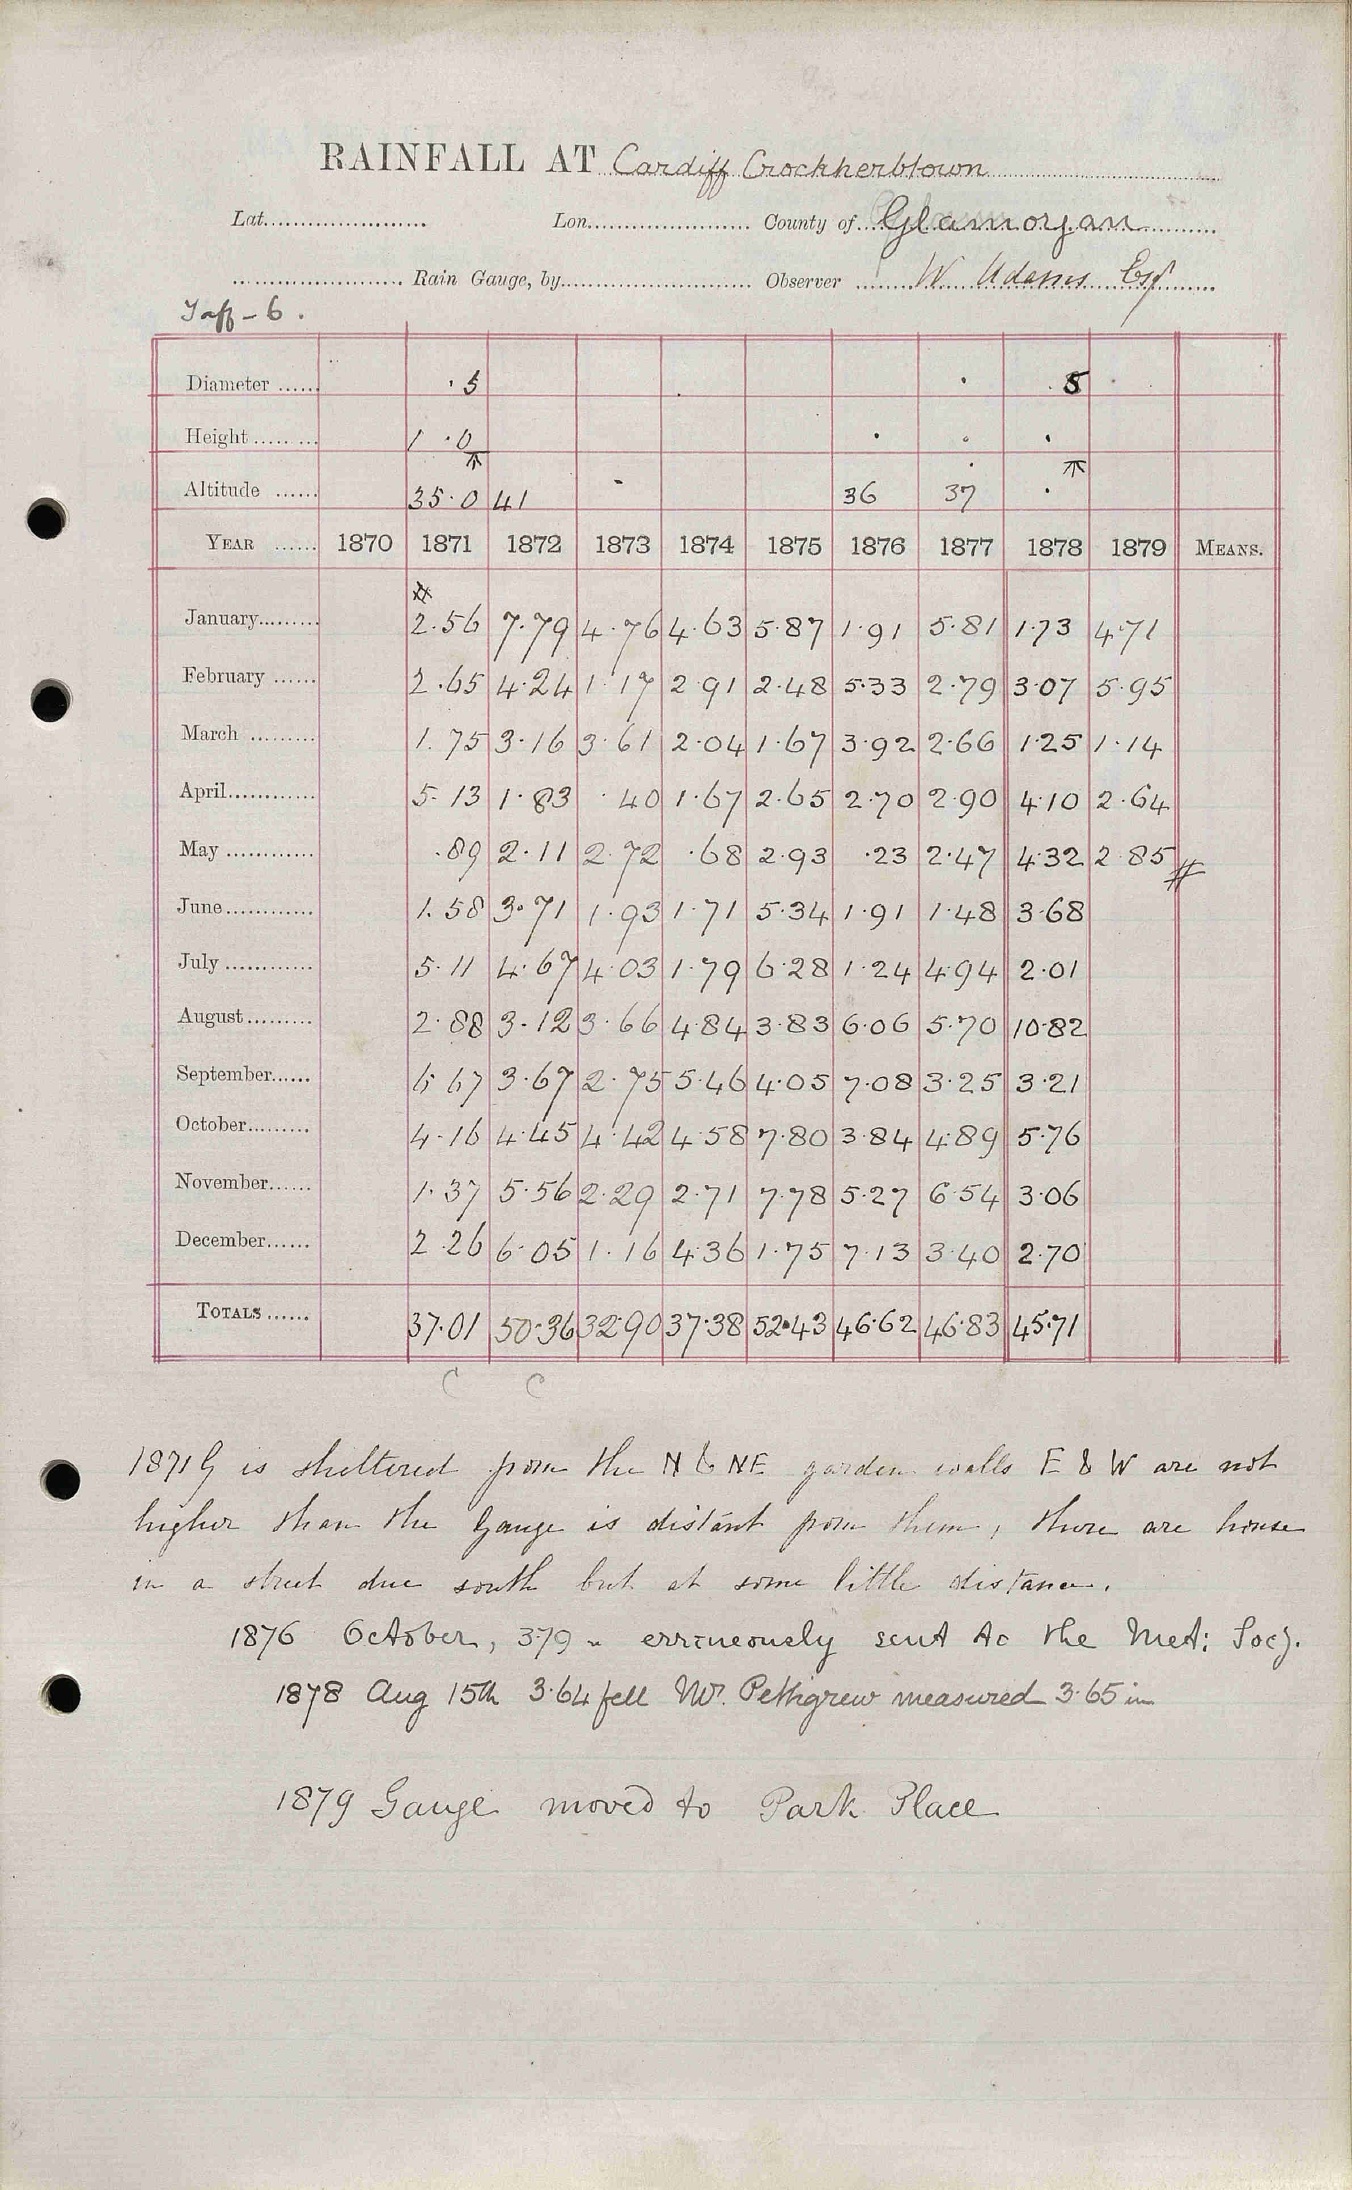 RAINFALL AT Cardiff Crockherbtown
Lat. Lon. County of Glamorgan
Rain Gauge, by Observer W Adams Esq
Taff - 6.
Diameter 5 8
Height 1 . 0
Altitude 35.0 41 36 37
YEAR 1870 1871 1872 1873 1874 1875 1876 1877 1878 1879 MEANS.
January 2.56 7.79 4.76 4.63 5.87 1.91 5.81 1.73 4.71
February 2.65 4.24 1.17 2.91 2.48 5.33 2.79 3.07 5.95
March 1.75 3.16 3.61 2.04 1.67 3.92 2.66 1.25 1.14
April 5.13 1.83 .40 1.67 2.65 2.70 2.90 4.10 2.64
May .89 2.11 2.72 .68 2.93 .23 2.47 4.32 2.85
June 1.58 3.71 1.93 1.71 5.34 1.91 1.48 3.68
July 5.11 4.67 4.03 1.79 6.28 1.24 4.94 2.01
August 2.88 3.12 3.66 4.84 3.83 6.06 5.70 10.82
September 6.67 3.67 2.75 5.46 4.05 7.08 3.25 3.21
October 4.16 4.45 4.42 4.58 7.80 3.84 4.89 5.76
November 1.37 5.56 2.29 2.71 7.78 5.27 6.54 3.06
December 2.26 6.05 1.16 4.36 1.75 7.13 3.40 2.70
TOTALS 37.01 50.36 32.90 37.38 52.43 46.62 46.83 45.71
C C
1871 G is sheltered from the N & NE garden walls E & W are not
higher than the Gauge is distant from them, there are house
in a street due south but at some little distance.
1876 October, 3.79 " erroneously sent to the Met: Socy.
1878 Aug 15th 3.64 fell Mr. Pettigrew measured 3.65 in
1879 Gauge moved to Park Place